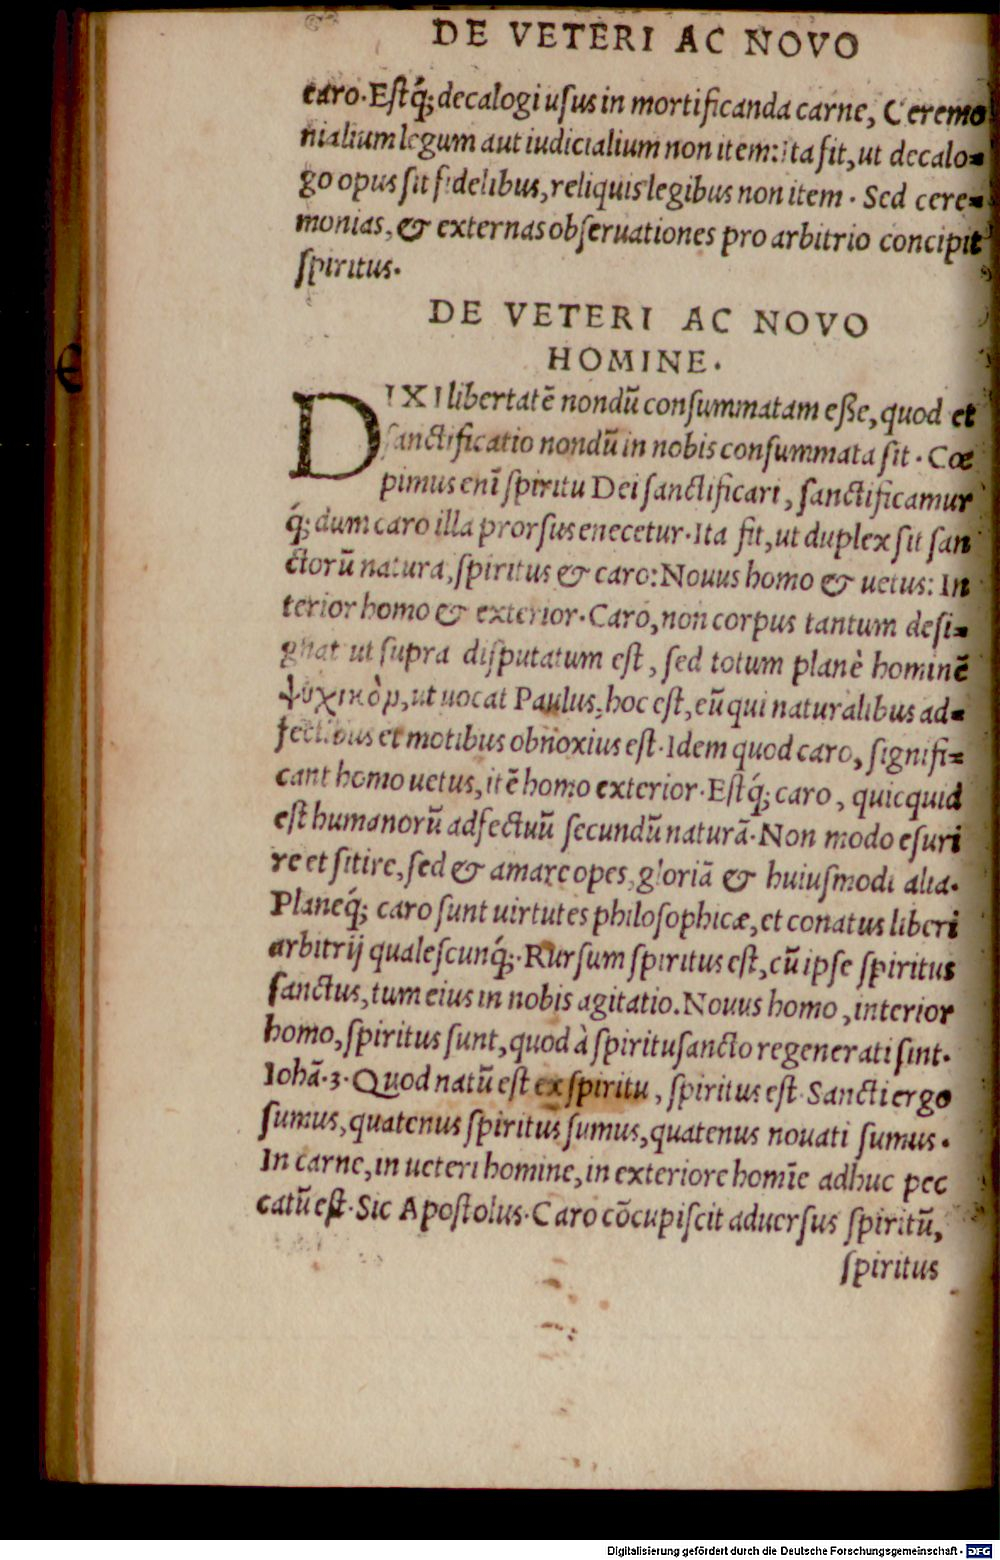 DE VETERI AC NOVO
caro. Estq́; decalogi usus in mortificanda carne, Ceremo
nialium legum aut iudicialium non item: Ita fit, ut decalo=
go opus sit fidelibus, reliquis legibus non item. Sed cere=
monias, & externas obseruationes pro arbitrio concipit
spiritus.
DE VETERI AC NOVO
HOMINE.
DIXI libertatē nondū consummatam eße, quod et
sanctificatio nondū in nobis consummata sit. Cœ
pimus enī spiritu Dei sanctificari, sanctificamur
q́; dum caro illa prorsus enecetur. Ita fit, ut duplex sit san
ctorū natura, spiritus & caro: Nouus homo & uetus: In
terior homo & exterior. Caro, non corpus tantum desi=
gnat ut supra disputatum est, sed totum planè hominē
ψυχικὸν, ut uocat Paulus, hoc est, eū qui naturalibus ad=
fectibus et motibus obnoxius est. Idem quod caro, signifi=
cant homo uetus, itē homo exterior. Estq́; caro, quicquid
est humanorū adfectuū secundū naturā. Non modo esuri
re et sitire, sed & amare opes, gloriā & huiusmodi alia.
Planeq́; caro sunt uirtutes philosophicæ, et conatus liberi
arbitrij qualescunq́;. Rursum spiritus est, cū ipse spiritus
sanctus, tum eius in nobis agitatio. Nouus homo, interior
homo, spiritus sunt, quod à spiritusancto regenerati sint.
Iohā. 3. Quod natū est ex spiritu, spiritus est. Sancti ergo
sumus, quatenus spiritus sumus, quatenus nouati sumus.
In carne, in ueteri homine, in exteriore homīe adhuc pec
catū est. Sic Apostolus. Caro cōcupiscit aduersus spiritū,
spiritus
Digitalisierung gefördert durch die Deutsche Forschungsgemeinschaft - DFG